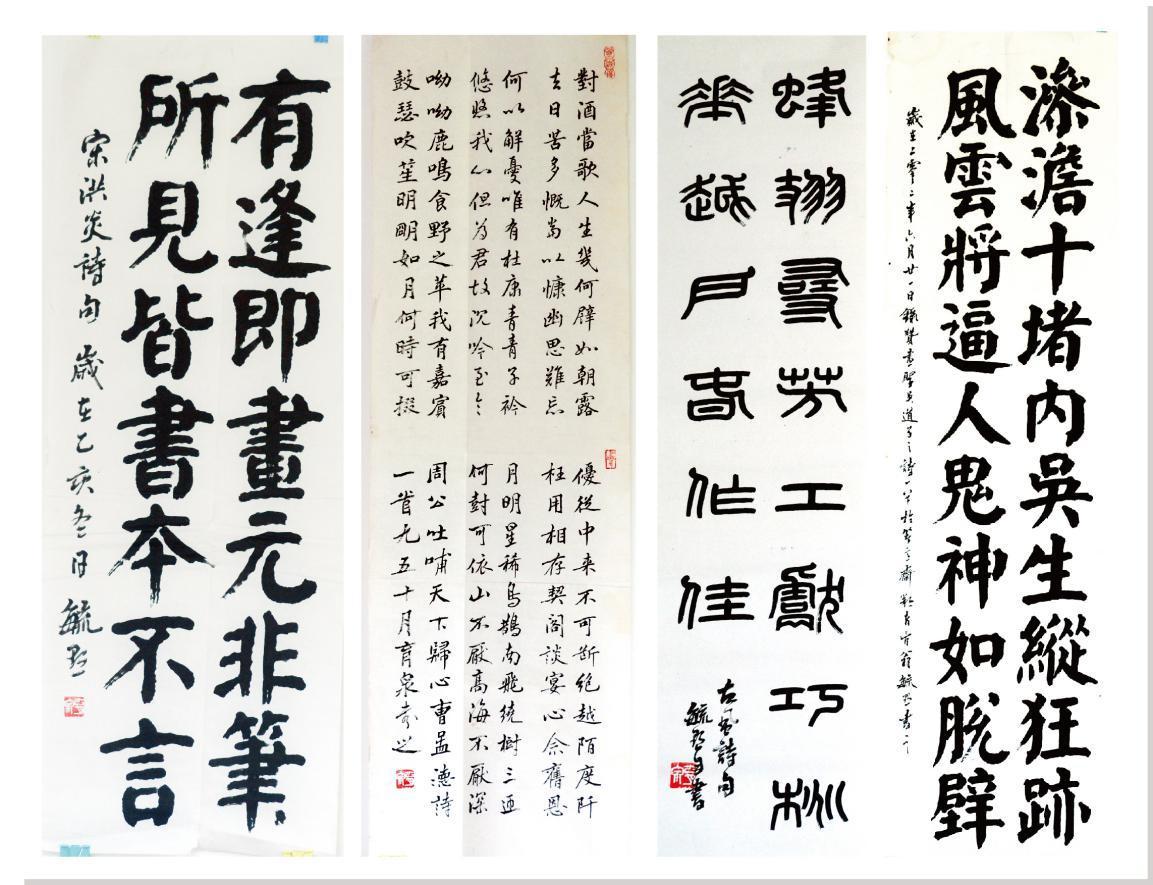 滲澹十堵内吳生縱狂跡
風雲將逼人鬼神如脫壁
蜂翎尋芳工獻巧
華越戶春作佳
古風詩句
對酒當歌人生幾何譬如朝露
去日苦多慨當以慷幽思難忘
何以解憂唯有杜康青青子衿
悠悠我心但为君故沉吟至今
呦呦鹿鳴食野之苹我有嘉賓
鼓瑟吹笙明明如月何時可掇
優從中来不可斷絕越陌度阡
枉用相存契阔談宴心念舊恩
月明星稀烏鵲南飛繞樹三匝
何封可依山不厭高海不厭深
周公吐哺天下歸心曹孟德詩
一首九五十月育泉
有逢即畫元非筆
所見皆書本不言
宋洪炎詩句歲在乙亥冬日